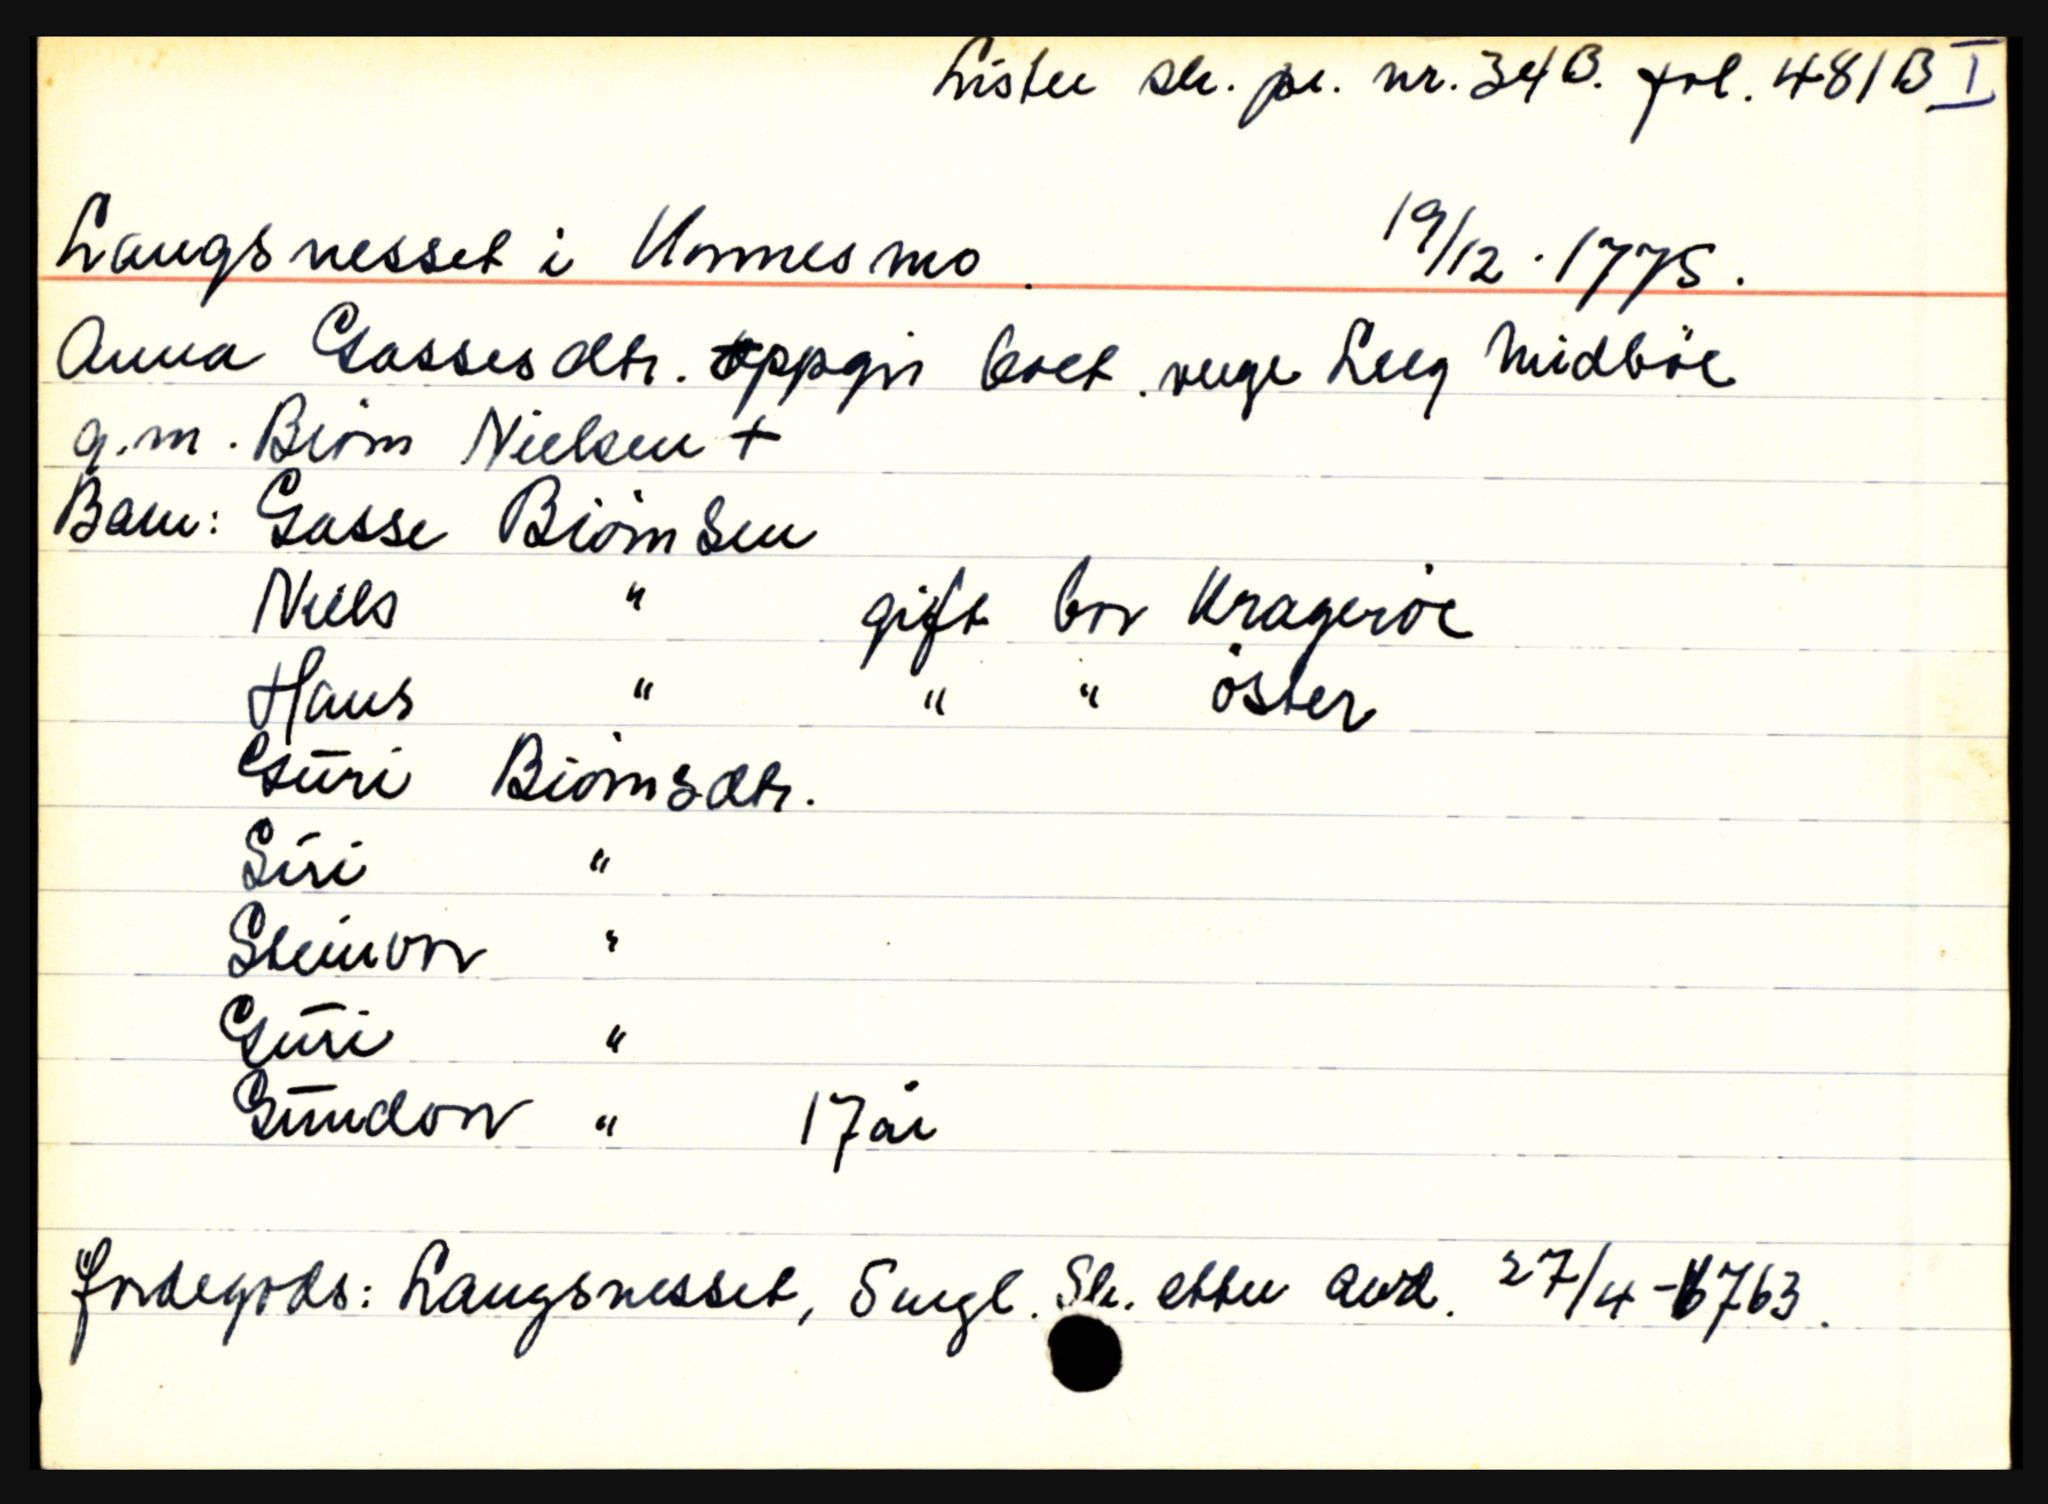 Lister sk. pr. nr. 34B. fol. 481B I
Langsnesset i Konnesmo. 19/12. 1775.
Anna Gassesdtr. oppgir boet. verge Leeg Midböe
g.m. Biörn Nielsen +
Barn: Gasse Biörnsen
Niels " gift bor Krageröe
Hans " " " öster
Gūri Biörnsdtr.
Siri "
Steinvor "
Gūri "
Gūndor " 17 år
Jordegods: Langsnesset, Sk. etter avd. 27/4-1763.